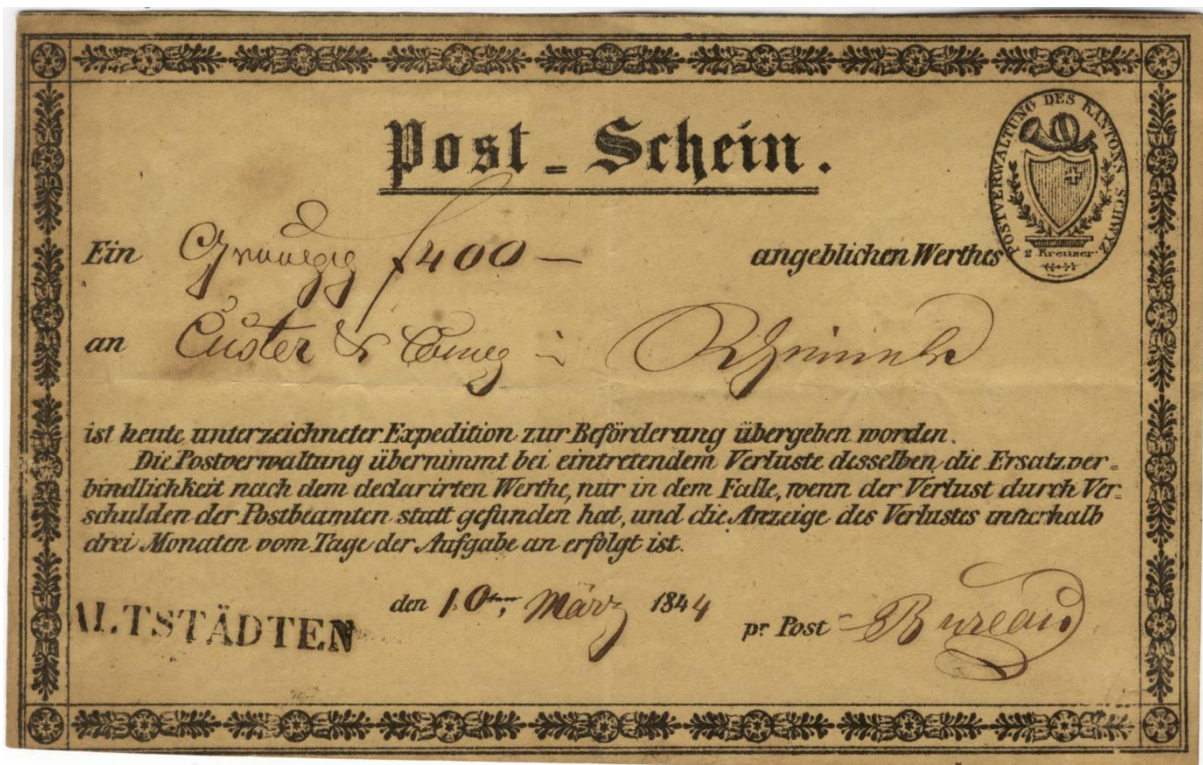 Post - Schein.
POSTVERWALTUNG DES KANTONS SCHWYZ.
2 Kreuzer.
Ein f 400 — angeblichen Werthes
an Custer & Comp
ist heute unterzeichneter Expedition zur Beförderung übergeben worden.
Die Postverwaltung übernimmt bei eintretendem Verluste desselben, die Ersatzver-
bindlichkeit nach dem declarirten Werthe, nur in dem Falle, wenn der Verlust durch Ver-
schulden der Postbeamten statt gefunden hat, und die Anzeige des Verlustes innerhalb
drei Monaten vom Tage der Aufgabe an erfolgt ist.
den 10ten März 1844
ALTSTÄDTEN
pr Post - Bureau